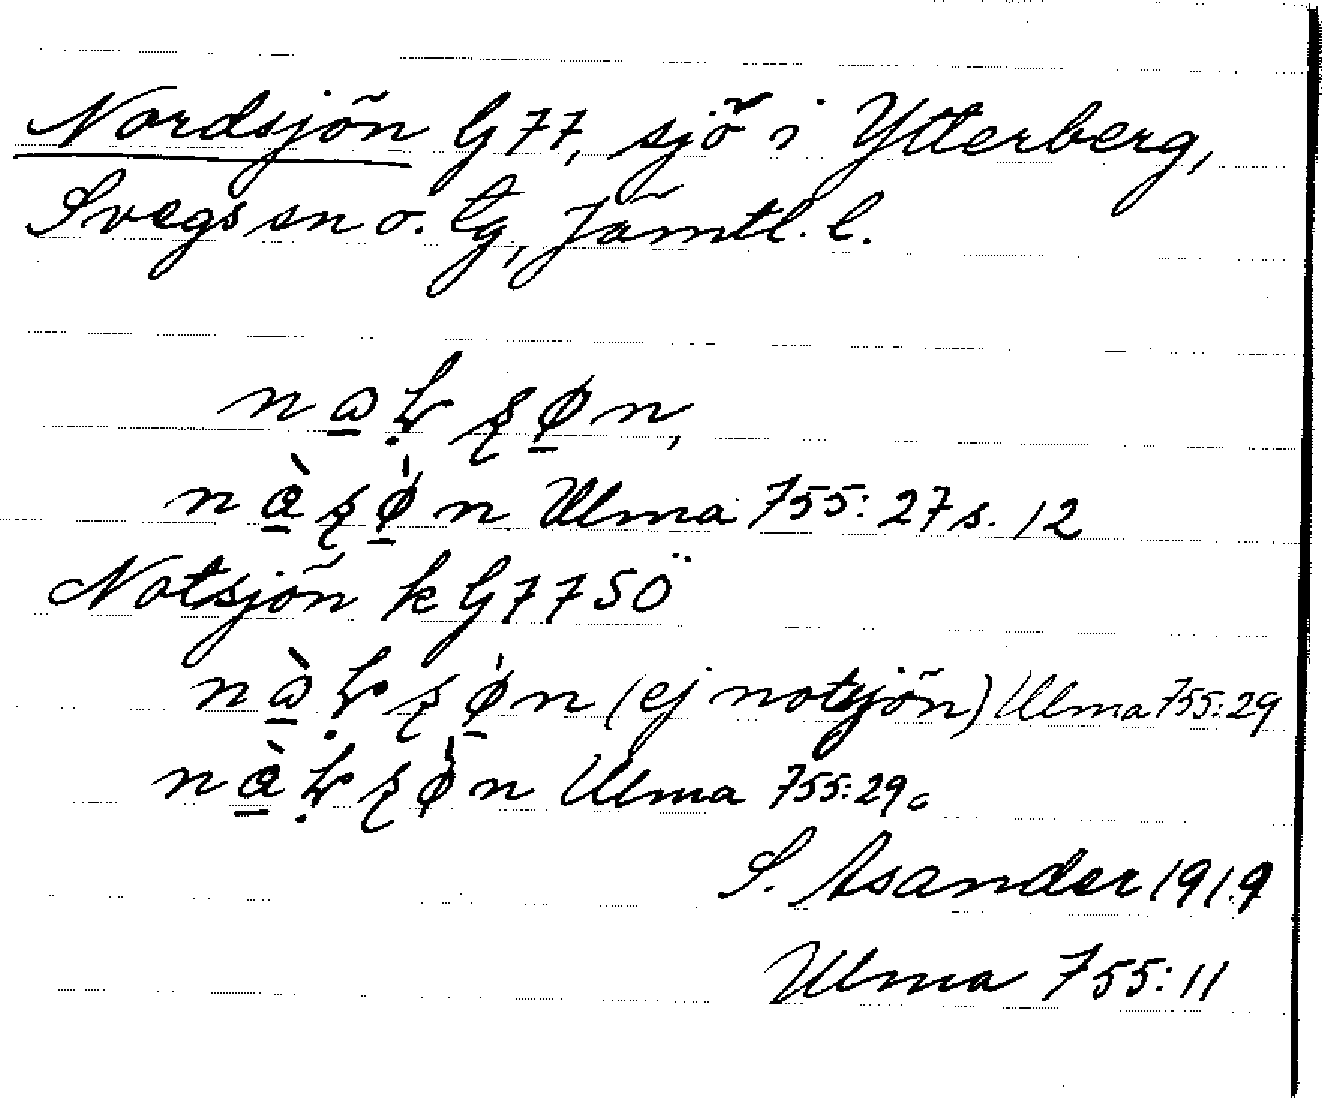 Nordsjön G77, sjö i Ytterberg,
Svegs sn o. tg, Jämtl. l.
Ulma 755: 27 s. 12
Notsjön k G77 SÖ
(ej notsjön) Ulma 755:29
Ulma 755:29c
S. Asander 1919
Ulma 755:11